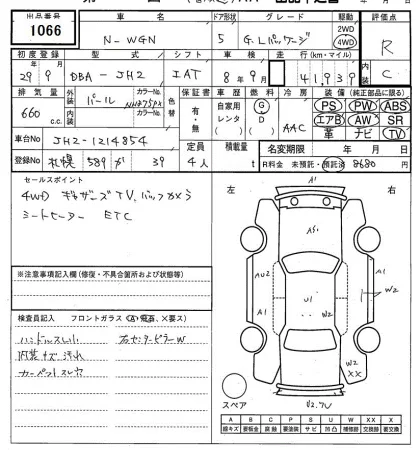 出品番号 車名 ドア形状 グレード 駆動 評価点
1066 N-WGN 5 G.Lパッケージ 2WD 4WD R
初度登録 型式 シフト 車検 走行(km・マイル) 内
29年9月 DBA-JH2 IAT 8年9月 41,939 C
排気量 外装 パール カラーNo. NH875PX 色替 保証書 車歴 燃料 冷房 装備(純正部品に限る)
660 c.c. 内装 カラーNo. 有・無 自家用 レンタ ( ) G D AAC PS PW ABS
エアB AW SR
革 ナビ TV
車台No JH2-1214854 定員 積載量 名変期限 年 月 日
登録No 札幌 589 が 39 4人 t R料金 未預託・預託済 8680 円
セールスポイント 左 右
4WD ギャザーズTV、バックカメラ
シートヒーター ETC
A1
AU2 A1
U1 W2
A1
※注意事項記入欄(修復・不具合箇所および状態等)
検査員記入 フロントガラス(A、飛石、X要ス)
ハンドルスレ 左センターピラーW
内装キズ汚れ
カーペットスレ穴
W2
XX
スペア U2.7U
A B C P S U W X XX
線キズ 要板金 腐 要塗装 サビ 凹凸 補修跡 要交換 交換跡